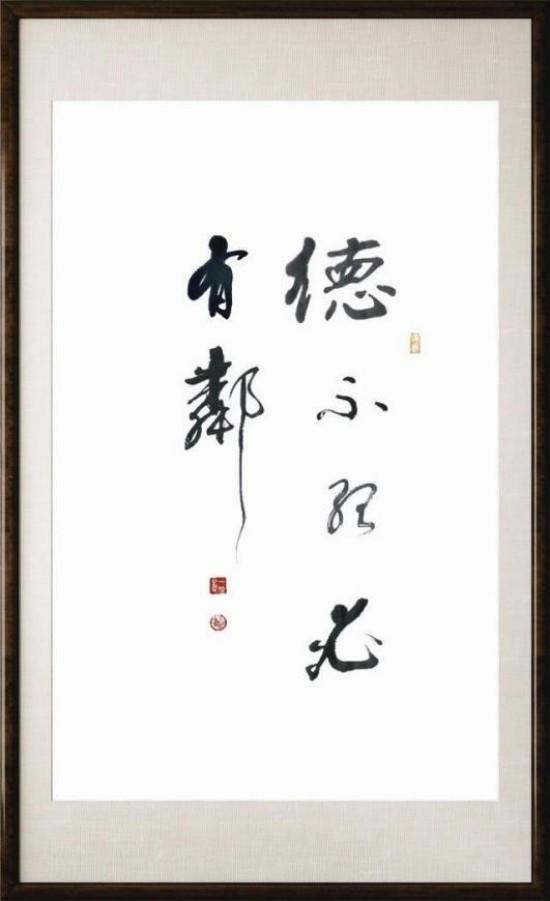 德不孤必
有鄰